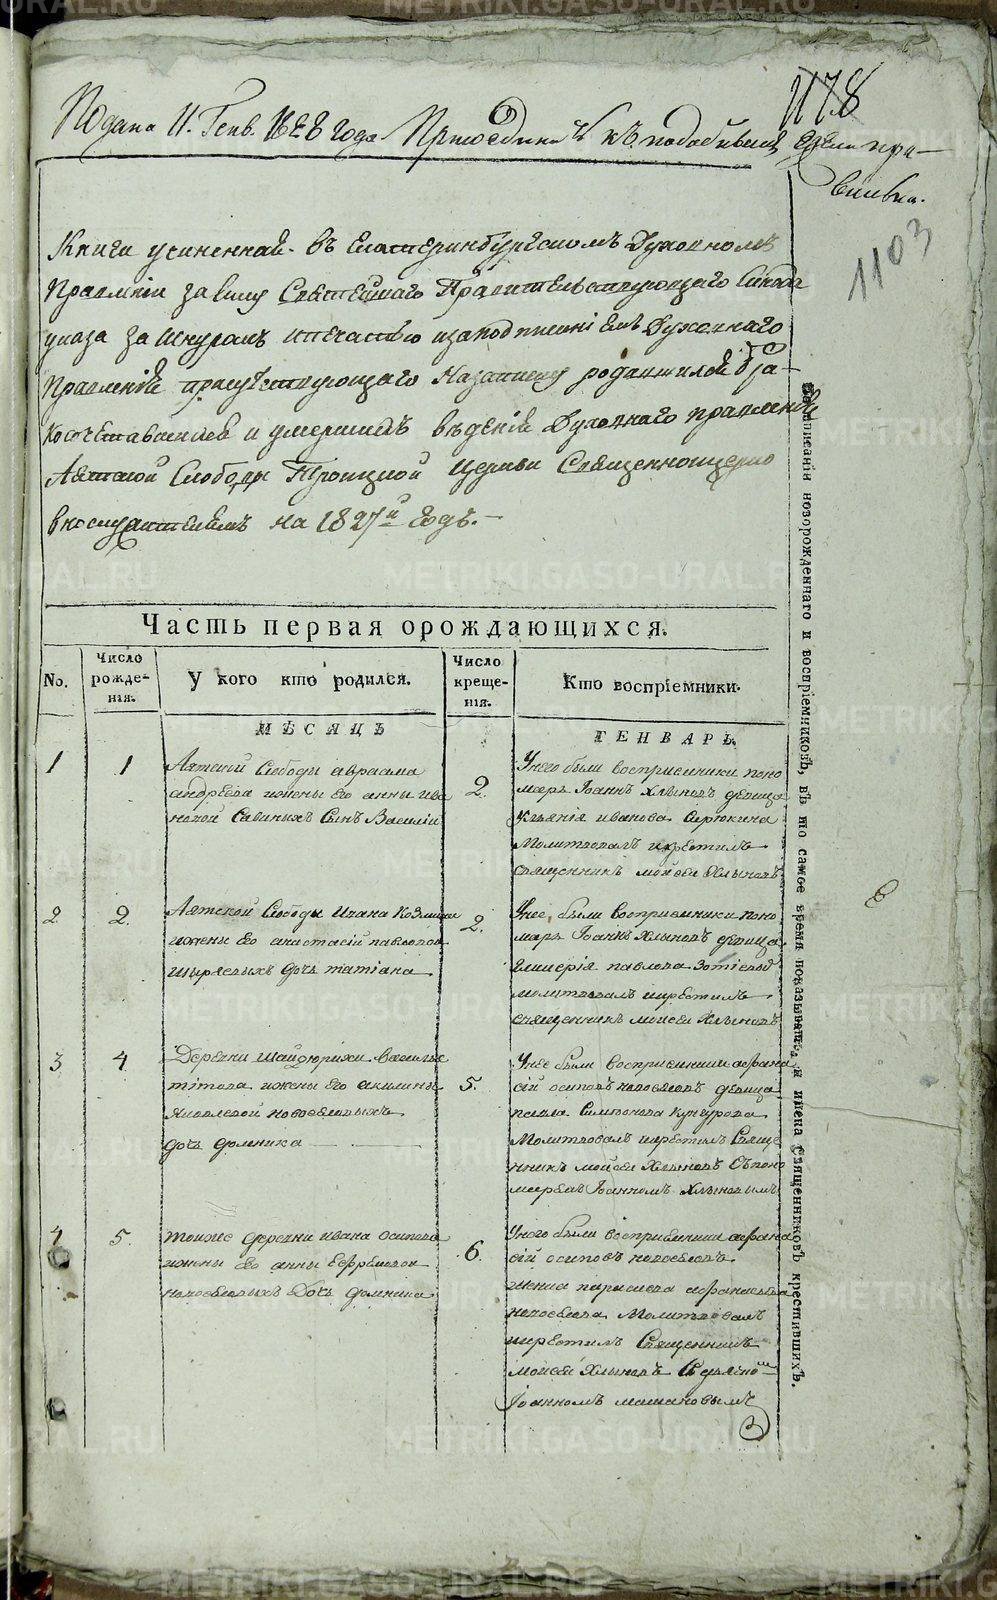 1178
Подана 11. Генв. 1828 года
1103
Книга учиненная въ Екатеринбургскомъ Духовномъ
Правленіи за силу Святейшаго Правительствующаго Синода
указа за шнуромъ ипечатью изаподписаніемъ Духовнаго
Правленія присутствующаго Назаписку родившихся бра-
косочетавшихся и умершихъ вѣденія Духовнаго правленія
Аятской Слободы Троицкой Церкви Священноцерко
вно на 1827й годъ.
Часть первая орождающихся.
No.
Число рожде-нія.
У кого кто родился.
Число креще-нія.
Кто воспріемники.
МѢСЯЦЪ
ГЕНВАРЬ.
1 1
Аятской Слободы авраама
андреева ижены его анны ива
новой Савиныхъ Сынъ Василіи
2.
Унего были восприемники поно
марь Іоаннъ Хлыновъ девица
иванова
Молитвовалъ икрестилъ
священникъ моисеи Хлыновъ
2 2.
Аятской Слободы Ивана Козмина
ижены его анастасіи павловой
дочь татіана
2.
Унее были восприемники поно
марь Іоаннъ Хлыновъ девица
павлова
молитвовалъ икрестилъ
священникъ моисеи Хлыновъ
3 4
Деревни Шайдурихи василья
титова ижены его акилины
Яковлевой новоселовыхъ
дочь домника
5.
Унее были восприемники афана
сій осиповъ новоселовъ девица
Симеонова
Молитвовалъ икрестилъ Свяще
нникъ моисеи Хлыновъ Съпоно
маремъ Іоанномъ Хлыновымъ
4 5.
тоиже деревни ивана осипова
ижены его анны Ефремовои
новоселовыхъ Дочь домника
6.
Унего были восприемники афана
сій осиповъ новоселовъ
афанасьева
новоселова Молитвовалъ
икрестилъ Священникъ
моисеи Хлыновъ
Іоанномъ
Позаписаніи новорожденнаго и воспріемниковъ, въ то самое время показывать, и имена Священниковъ крестившихъ.
METRIKI.GASO-URAL.RU